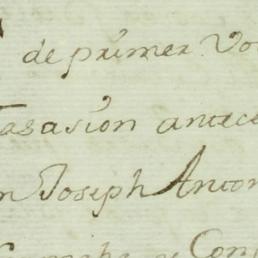 de primer Vo
tasasion antece
n Joseph Anton
y Con